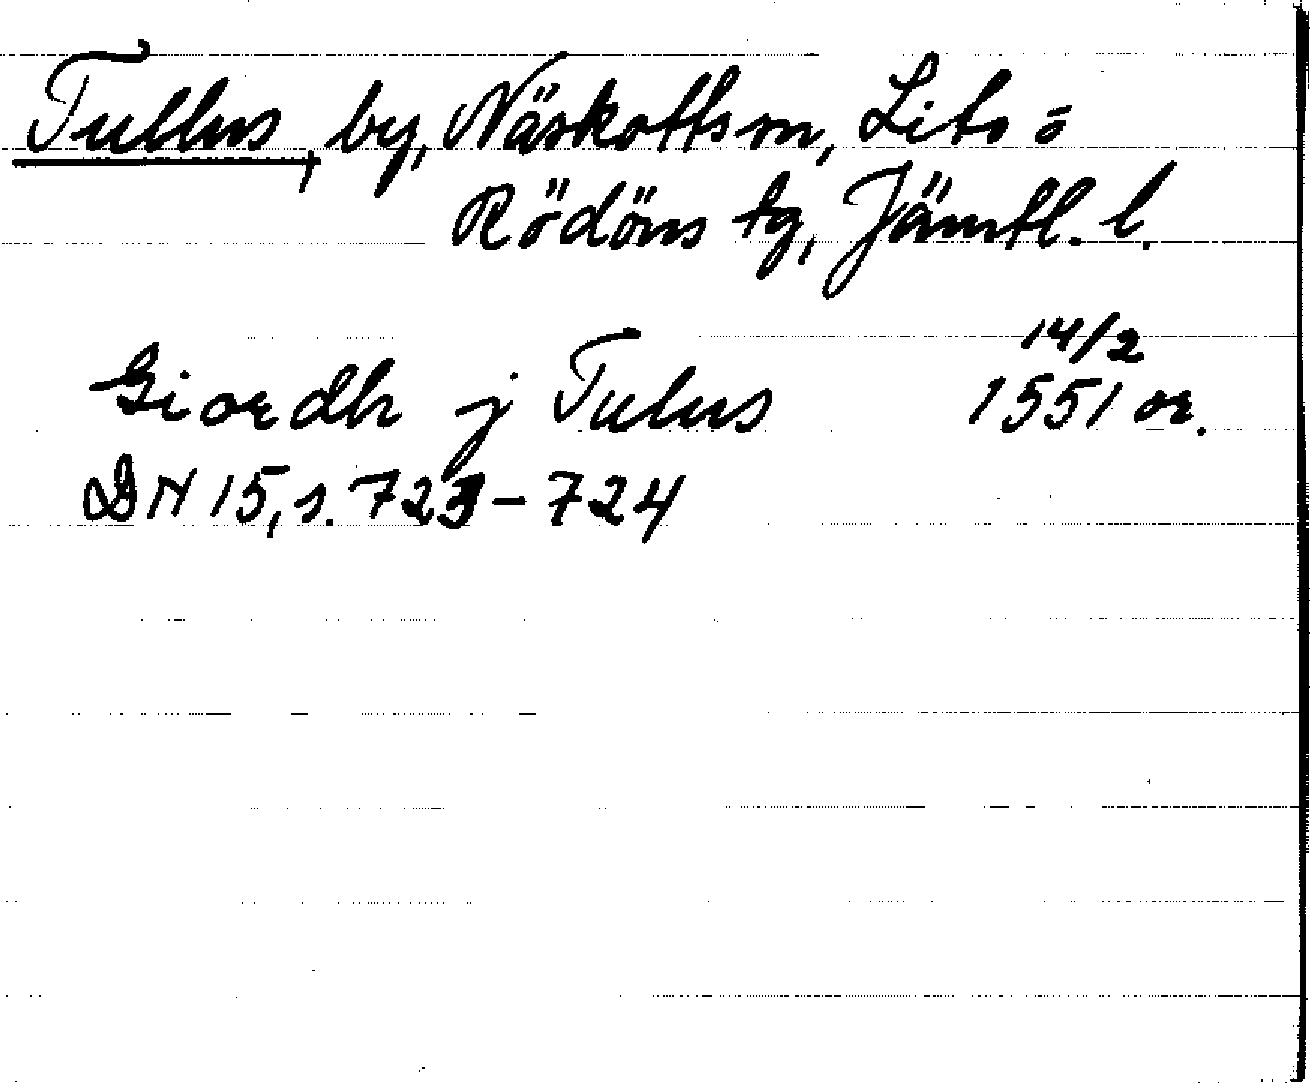 Tullus, by, Näskotts sn, Lits o
Rödöns tg, Jämtl. l.
14/2
Giordh j Tulus 1551 or.
DN 15, s. 723-724